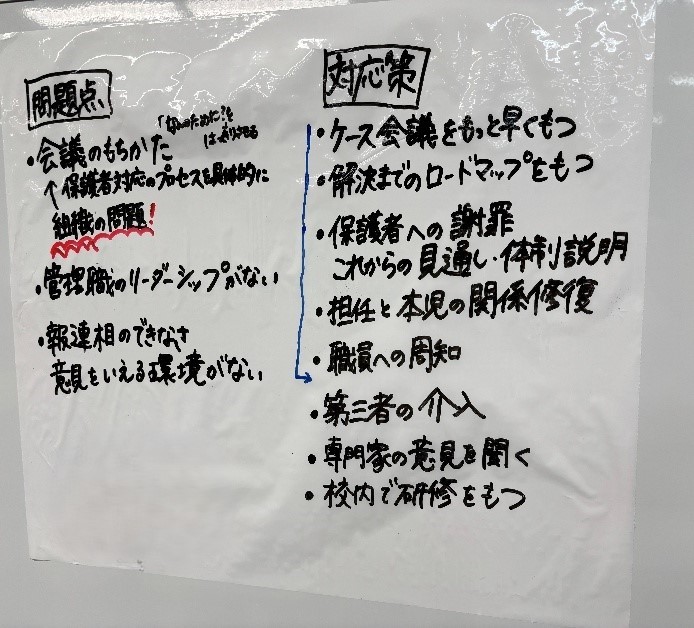 問題点
「なんのために?」を
はっきりさせる
・会議のもちかた
↑保護者対応のプロセスを具体的に
組織の問題!
・管理職のリーダーシップがない
・報連相のできなさ
意見をいえる環境がない
対応策
・ケース会議をもっと早くもつ
・解決までのロードマップをもつ
・保護者への謝罪
これからの見通し・体制説明
・担任と本児の関係修復
・職員への周知
・第三者の介入
・専門家の意見を聞く
・校内で研修をもつ